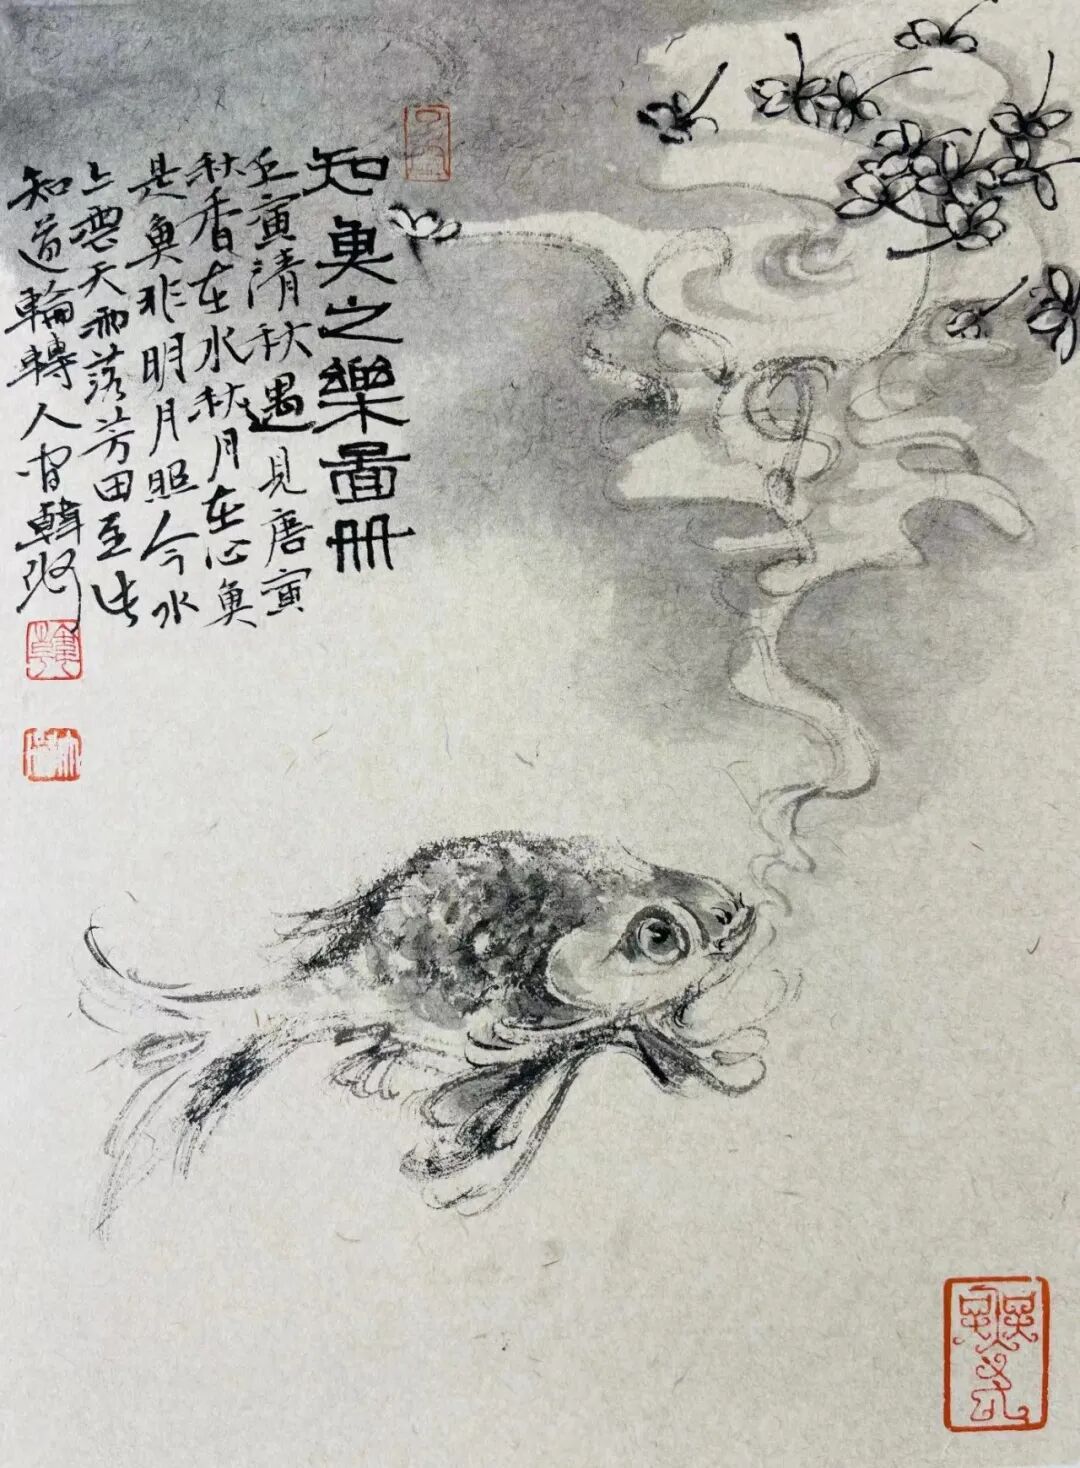 知魚之樂圖冊
壬寅清秋遇見唐寅
秋香在水秋月在心魚
是魚非明月照今水
上雲天雨落芳田至此
知道輪轉人間韓